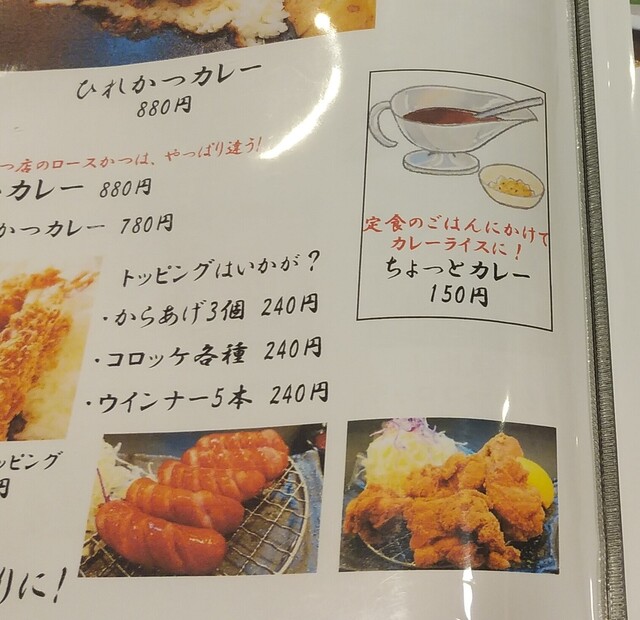 ひれかつカレー
880円
つ店のロースかつは、やっぱり違う!
カレー 880円
かつカレー 780円
トッピングはいかが?
・からあげ3個 240円
・コロッケ各種 240円
・ウインナー5本 240円
定食のごはんにかけて
カレーライスに!
ちょっとカレー
150円
ッピング
円
りに!